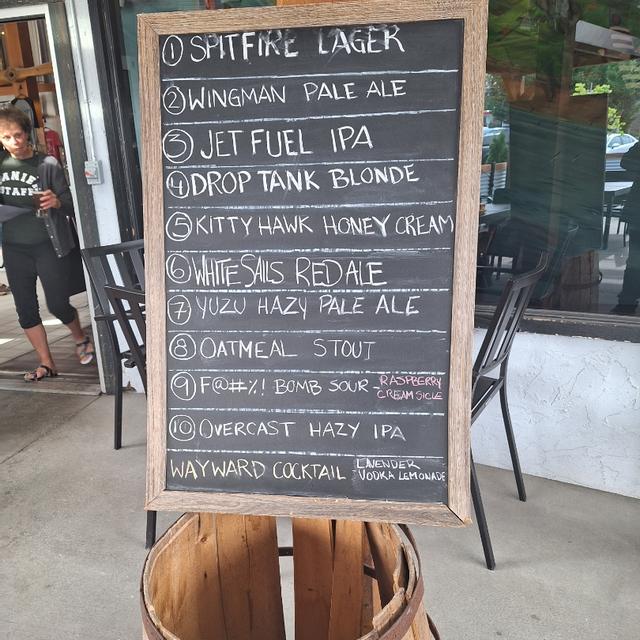 ① SPITFIRE LAGER
② WINGMAN PALE ALE
③ JET FUEL IPA
④ DROP TANK BLONDE
⑤ KITTY HAWK HONEY CREAM
⑥ WHITE SAILS RED ALE
⑦ YUZU HAZY PALE ALE
⑧ OATMEAL STOUT
⑨ F@#%! BOMB SOUR - RASPBERRY
CREAMSICLE
⑩ OVERCAST HAZY IPA
WAYWARD COCKTAIL LAVENDER
VODKA LEMONADE
STAFF